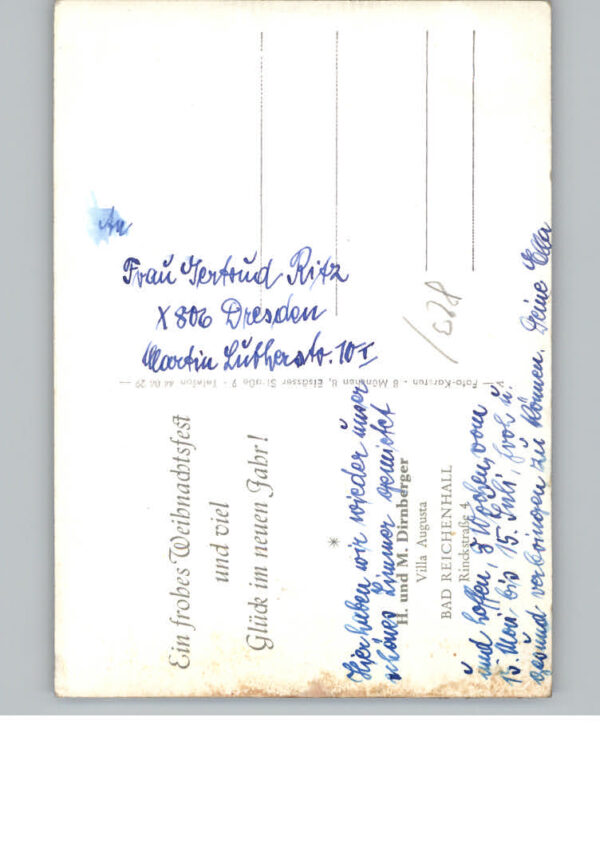 An
Frau Gertrud Ritz
X 806 Dresden
Martin Lutherstr. 10 I
Foto-Karsten - 8 München 8, Elsässer Straße 9 - Telefon 44 04 29
Ein frohes Weihnachtsfest
und viel
Glück im neuen Jahr!
*
Hier haben wir wieder unser
schönes Zimmer gemietet
H. und M. Dirnberger
Villa Augusta
BAD REICHENHALL
Rinckstraße 4
und hoffen, 8 Wochen, vom
15. Mai bis 15. Juli, froh u.
gesund verbringen zu können. Deine Ella